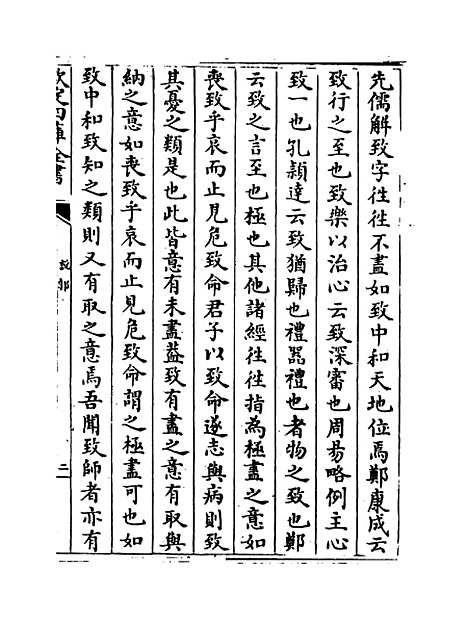 先儒解致字徃徃不盡如致中和天地位焉鄭康成云
致行之至也致樂以治心云致深審也周昜略例主心
致一也孔頴達云致猶歸也禮噐禮也者物之致也鄭
云致之言至也極也其他諸經徃徃指為極盡之意如
喪致乎哀而止見危致命君子以致命遂志與病則致
其憂之類是也此皆意有未盡葢致有盡之意有取與
納之意如喪致乎哀而止見危致命謂之極盡可也如
致中和致知之類則又有取之意焉吾聞致師者亦有
欽定四庫全書
說郛
二